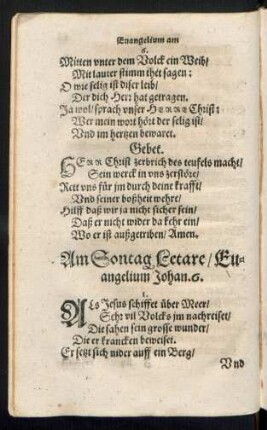 Euangelium am
6.
Mitten vnter dem Volck ein Weib/
Mit lauter stimm thet sagen:
O wie selig ist diser leib/
Der dich Herr hat getragen.
Ja wol/ sprach vnser HERRE Christ:
Wer mein wort hört der selig ist/
Vnd im hertzen bewaret.
Gebet.
HERR Christ zerbrich des teufels macht/
Sein werck in vns zerstöre/
Rett vns für jm durch deine krafft/
Vnd seiner boßheit wehre/
Hilff daß wir ja nicht sicher sein/
Daß er nicht wider da kehr ein/
Wo er ist außgetriben/ Amen.
Am Sontag Letare/ Eu-
angelium Johan. 6.
1.
ALs Jesus schiffet über Meer/
Sehr vil Volcks jm nachreiset/
Die sahen sein grosse wunder/
Die er krancken beweiset.
Er setzt sich nider auff ein Berg/
Vnd